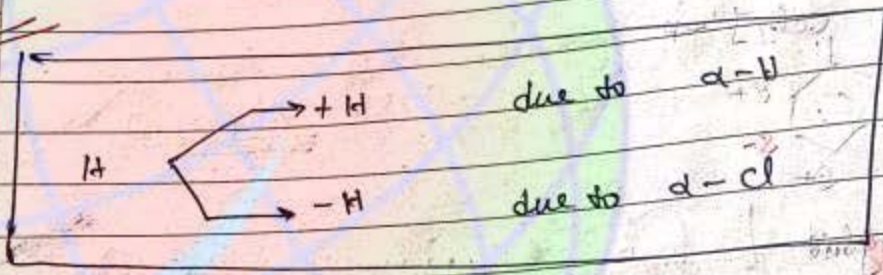 +H due to α-H
H
-H due to α-Cl